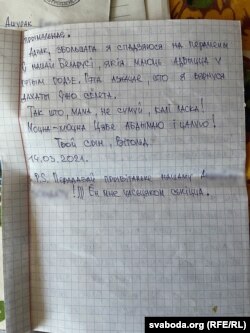 Ашурак
прыгнятае.
Аднак, збольшага я спадзяюся на перамены
ў нашай Беларусі, якія маюць адбыцца ў
гэтым годзе. Гэта азначае, што я вярнуся
дахаты ўжо сёлета.
Так што, мама, не сумуй, калі ласка!
Моцна-моцна Цябе абдымаю і цалую!
Твой сын, Вітольд.
14.03.2021.
P.S. Перадавай прывітанне нашаму
!))) Ён мне часцяком сніцца.
svaboda.org (RFE/RL)